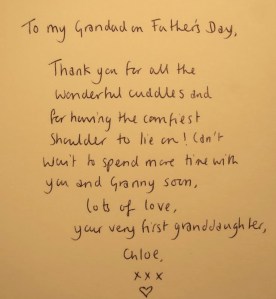 To my Grandad on Father's Day,
Thank you for all the
wonderful cuddles and
for having the comfiest
shoulder to lie on! Can't
wait to spend more time with
you and Granny soon,
lots of love,
your very first granddaughter,
Chloe,
x x x
♡